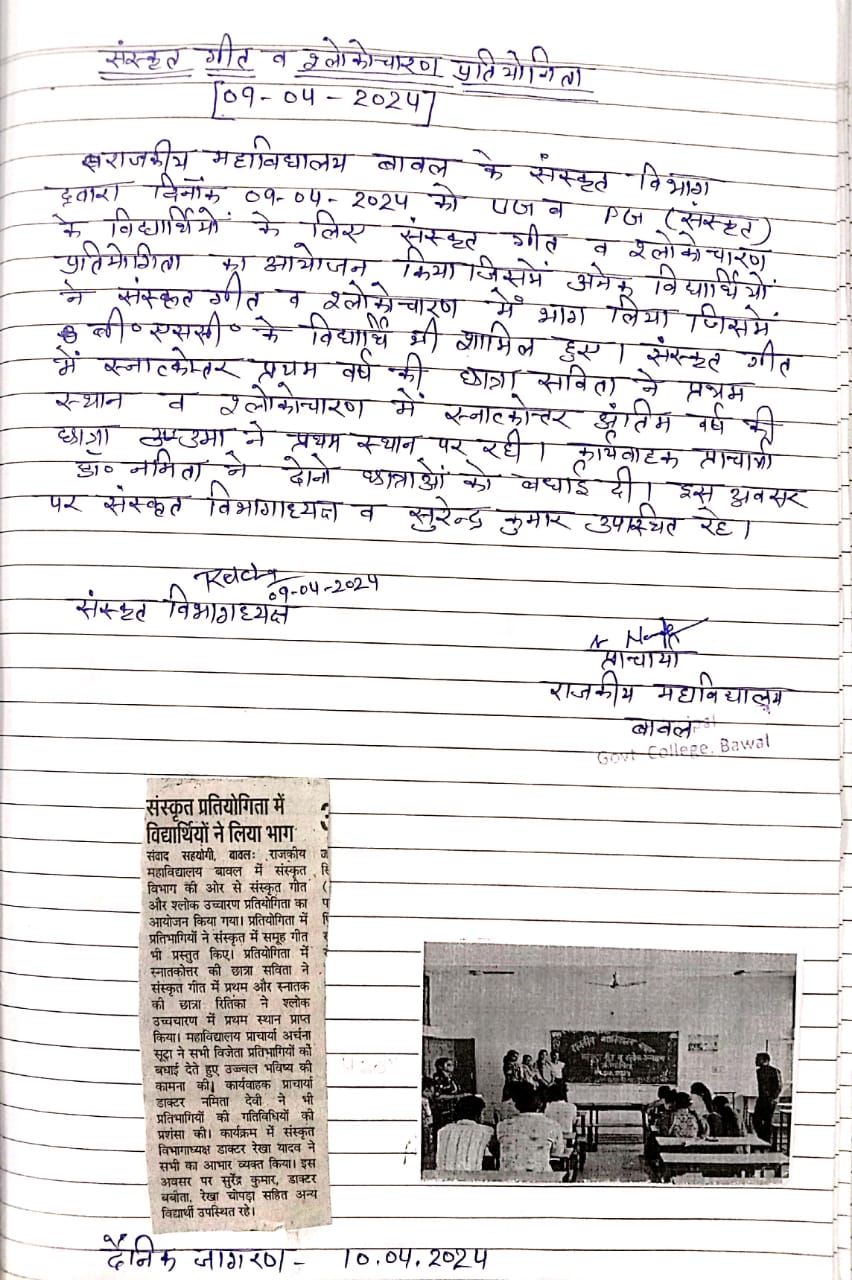 संस्कृत गीत व श्लोकोचारण प्रतियोगिता
[09-04-2024]
राजकीय महाविधालय बावल के संस्कृत विभाग
द्वारा दिनाँक 09-04-2024 को UG व PG (संस्कृत)
के विद्यार्थियों के लिए संस्कृत गीत व श्लोकोचारण
प्रतियोगिता का आयोजन किया जिसमें अनेक विद्यार्थियों
ने संस्कृत गीत व श्लोकोचारण में भाग लिया जिसमें
बी० एससी० के विद्यार्थि भी शामिल हुए। संस्कृत गीत
में स्नातकोत्तर प्रथम वर्ष की छात्रा सविता ने प्रथम
स्थान व श्लोकोचारण में स्नातकोत्तर अंतिम वर्ष की
छात्रा उमा ने प्रथम स्थान पर रही। कार्यवाहक प्राचार्या
डॉ० नमिता ने दोनो छात्राओं को बधाई दी। इस अवसर
पर संस्कृत विभागाध्यक्ष व सुरेन्द्र कुमार उपस्थित रहे।
09-04-2024
संस्कृत विभागध्यक्ष
प्राचार्या
राजकीय महाविधालय
बावल
Govt College, Bawal
संस्कृत प्रतियोगिता में
विद्यार्थियों ने लिया भाग
संवाद सहयोगी, बावलः राजकीय
महाविद्यालय बावल में संस्कृत
विभाग की ओर से संस्कृत गीत
और श्लोक उच्चारण प्रतियोगिता का
आयोजन किया गया। प्रतियोगिता में
प्रतिभागियों ने संस्कृत में समूह गीत
भी प्रस्तुत किए। प्रतियोगिता में
स्नातकोत्तर की छात्रा सविता ने
संस्कृत गीत में प्रथम और स्नातक
की छात्रा रितिका ने श्लोक
उच्चचारण में प्रथम स्थान प्राप्त
किया। महाविद्यालय प्राचार्या अर्चना
सूद्रा ने सभी विजेता प्रतिभागियों को
बधाई देते हुए उज्ज्वल भविष्य की
कामना की। कार्यवाहक प्राचार्या
डाक्टर नमिता देवी ने भी
प्रतिभागियों की गतिविधियों की
प्रशंसा की। कार्यक्रम में संस्कृत
विभागाध्यक्ष डाक्टर रेखा यादव ने
सभी का आभार व्यक्त किया। इस
अवसर पर सुरेंद्र कुमार, डाक्टर
बबीता, रेखा चोपड़ा सहित अन्य
विद्यार्थी उपस्थित रहे।
दैनिक जागरण- 10.04.2024